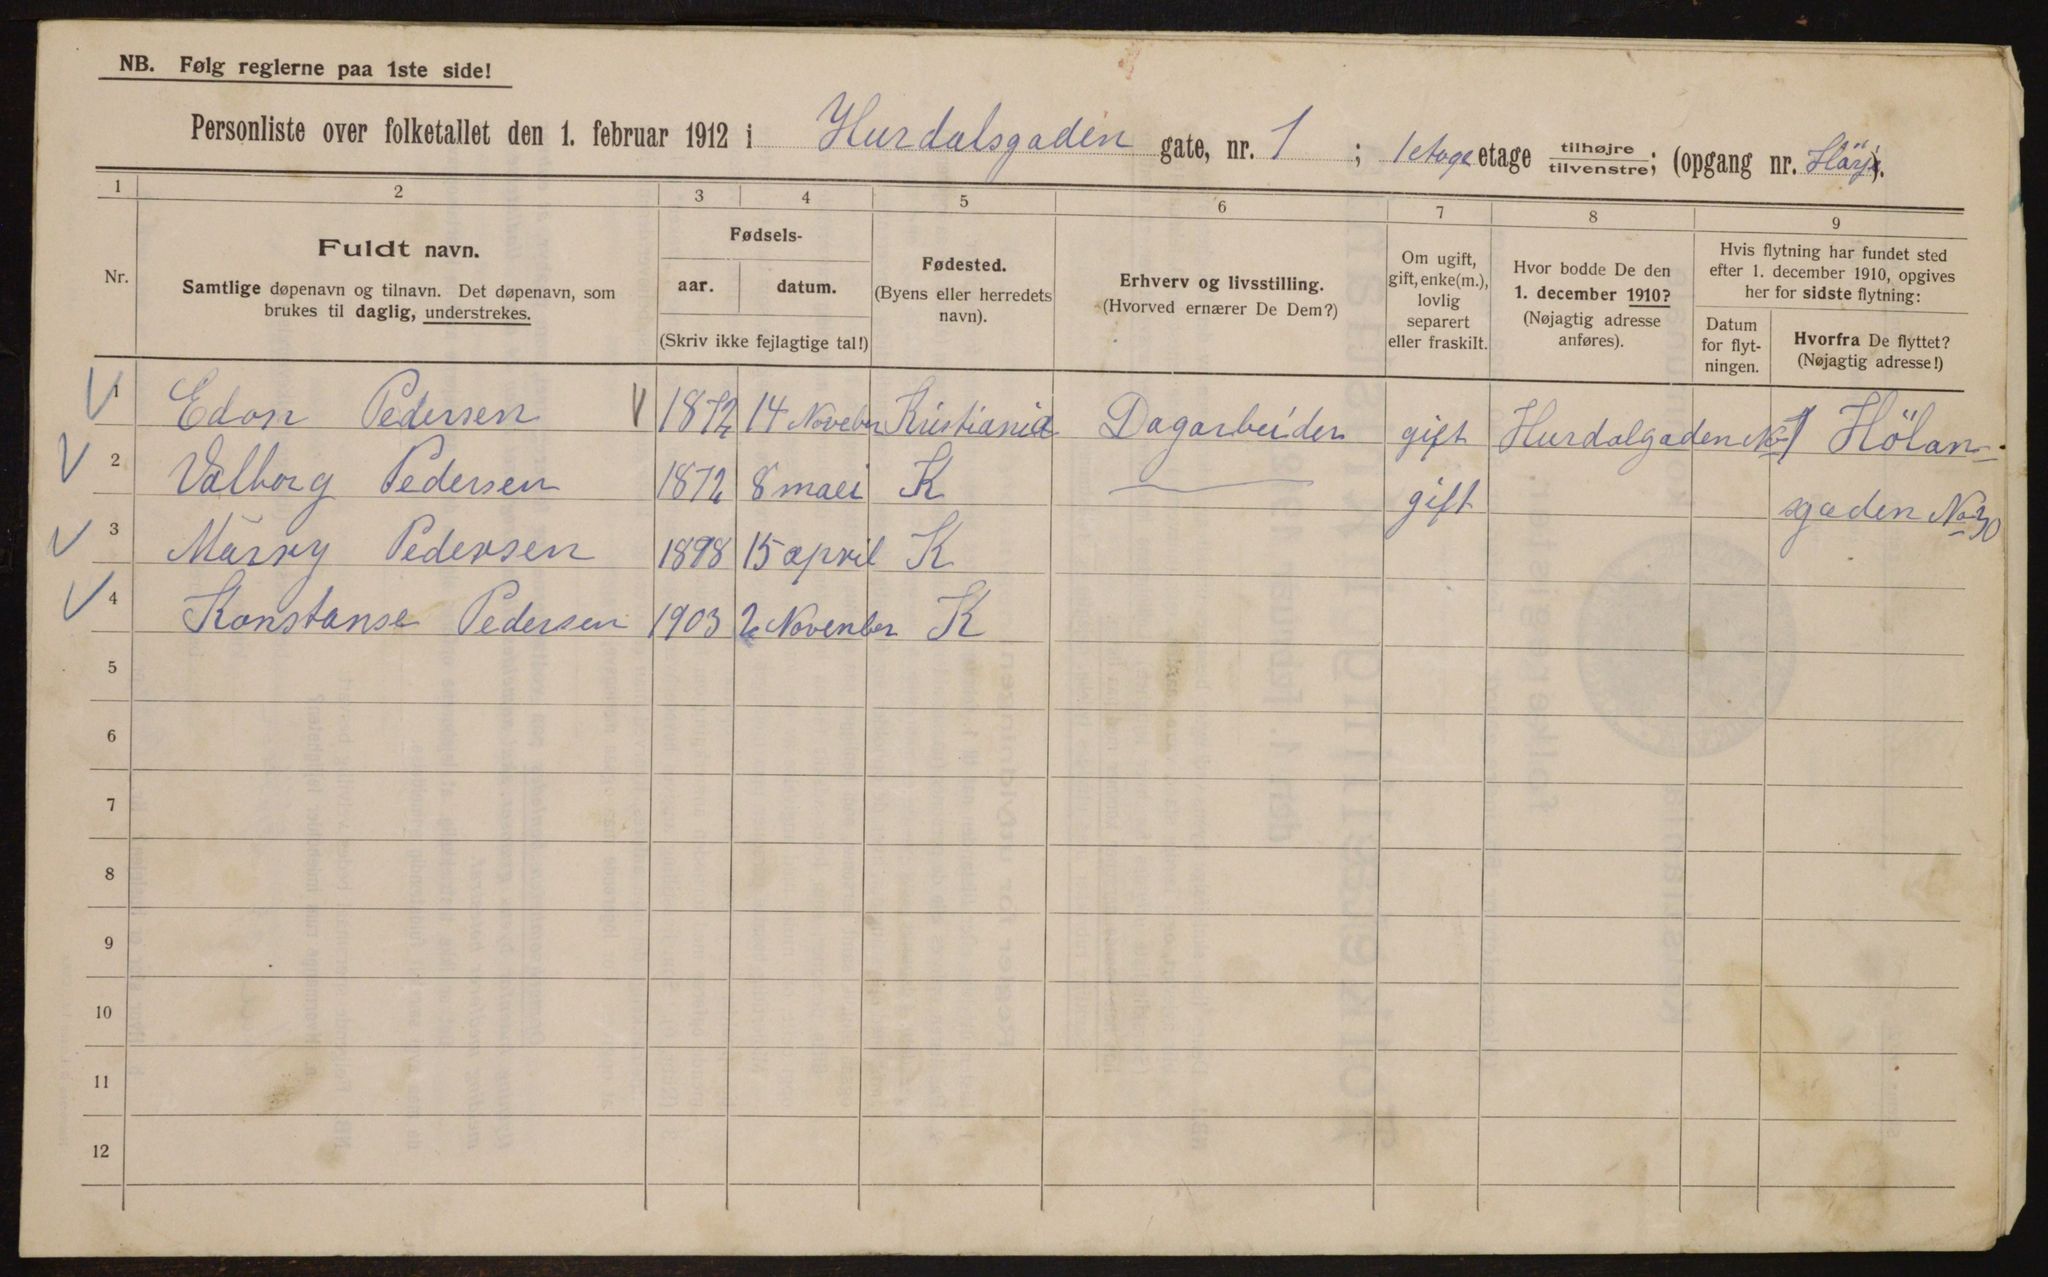 NB. Følg reglerne paa 1ste side!
Personliste over folketallet den 1. februar 1912 i Hurdalsgaden gate, nr. 1 ; 1 etage etage tilhøjre tilvenstre; (opgang nr. ).
1 2 3 4 5 6 7 8 9
Nr.
Fuldt navn.
Samtlige døpenavn og tilnavn. Det døpenavn, som
brukes til daglig, understrekes.
Fødsels-
aar. datum.
(Skriv ikke fejlagtige tal!)
Fødested.
(Byens eller herredets
navn).
Erhverv og livsstilling.
(Hvorved ernærer De Dem?)
Om ugift,
gift, enke(m.),
lovlig
separert
eller fraskilt.
Hvor bodde De den
1. december 1910?
(Nøjagtig adresse
anføres).
Hvis flytning har fundet sted
efter 1. december 1910, opgives
her for sidste flytning:
Datum
for flyt-
ningen.
Hvorfra De flyttet?
(Nøjagtig adresse!)
1 Edon Pedersen 1872 14 Noveber Kristiania Dagarbeider gift Hurdalgaden No 1 Hölan-
2 Valborg Pedersen 1872 8 maei K gift sgaden No 30
3 Märry Pedersen 1898 15 april K
4 Konstanse Pedersen 1903 2 Novenber K
5
6
7
8
9
10
11
12